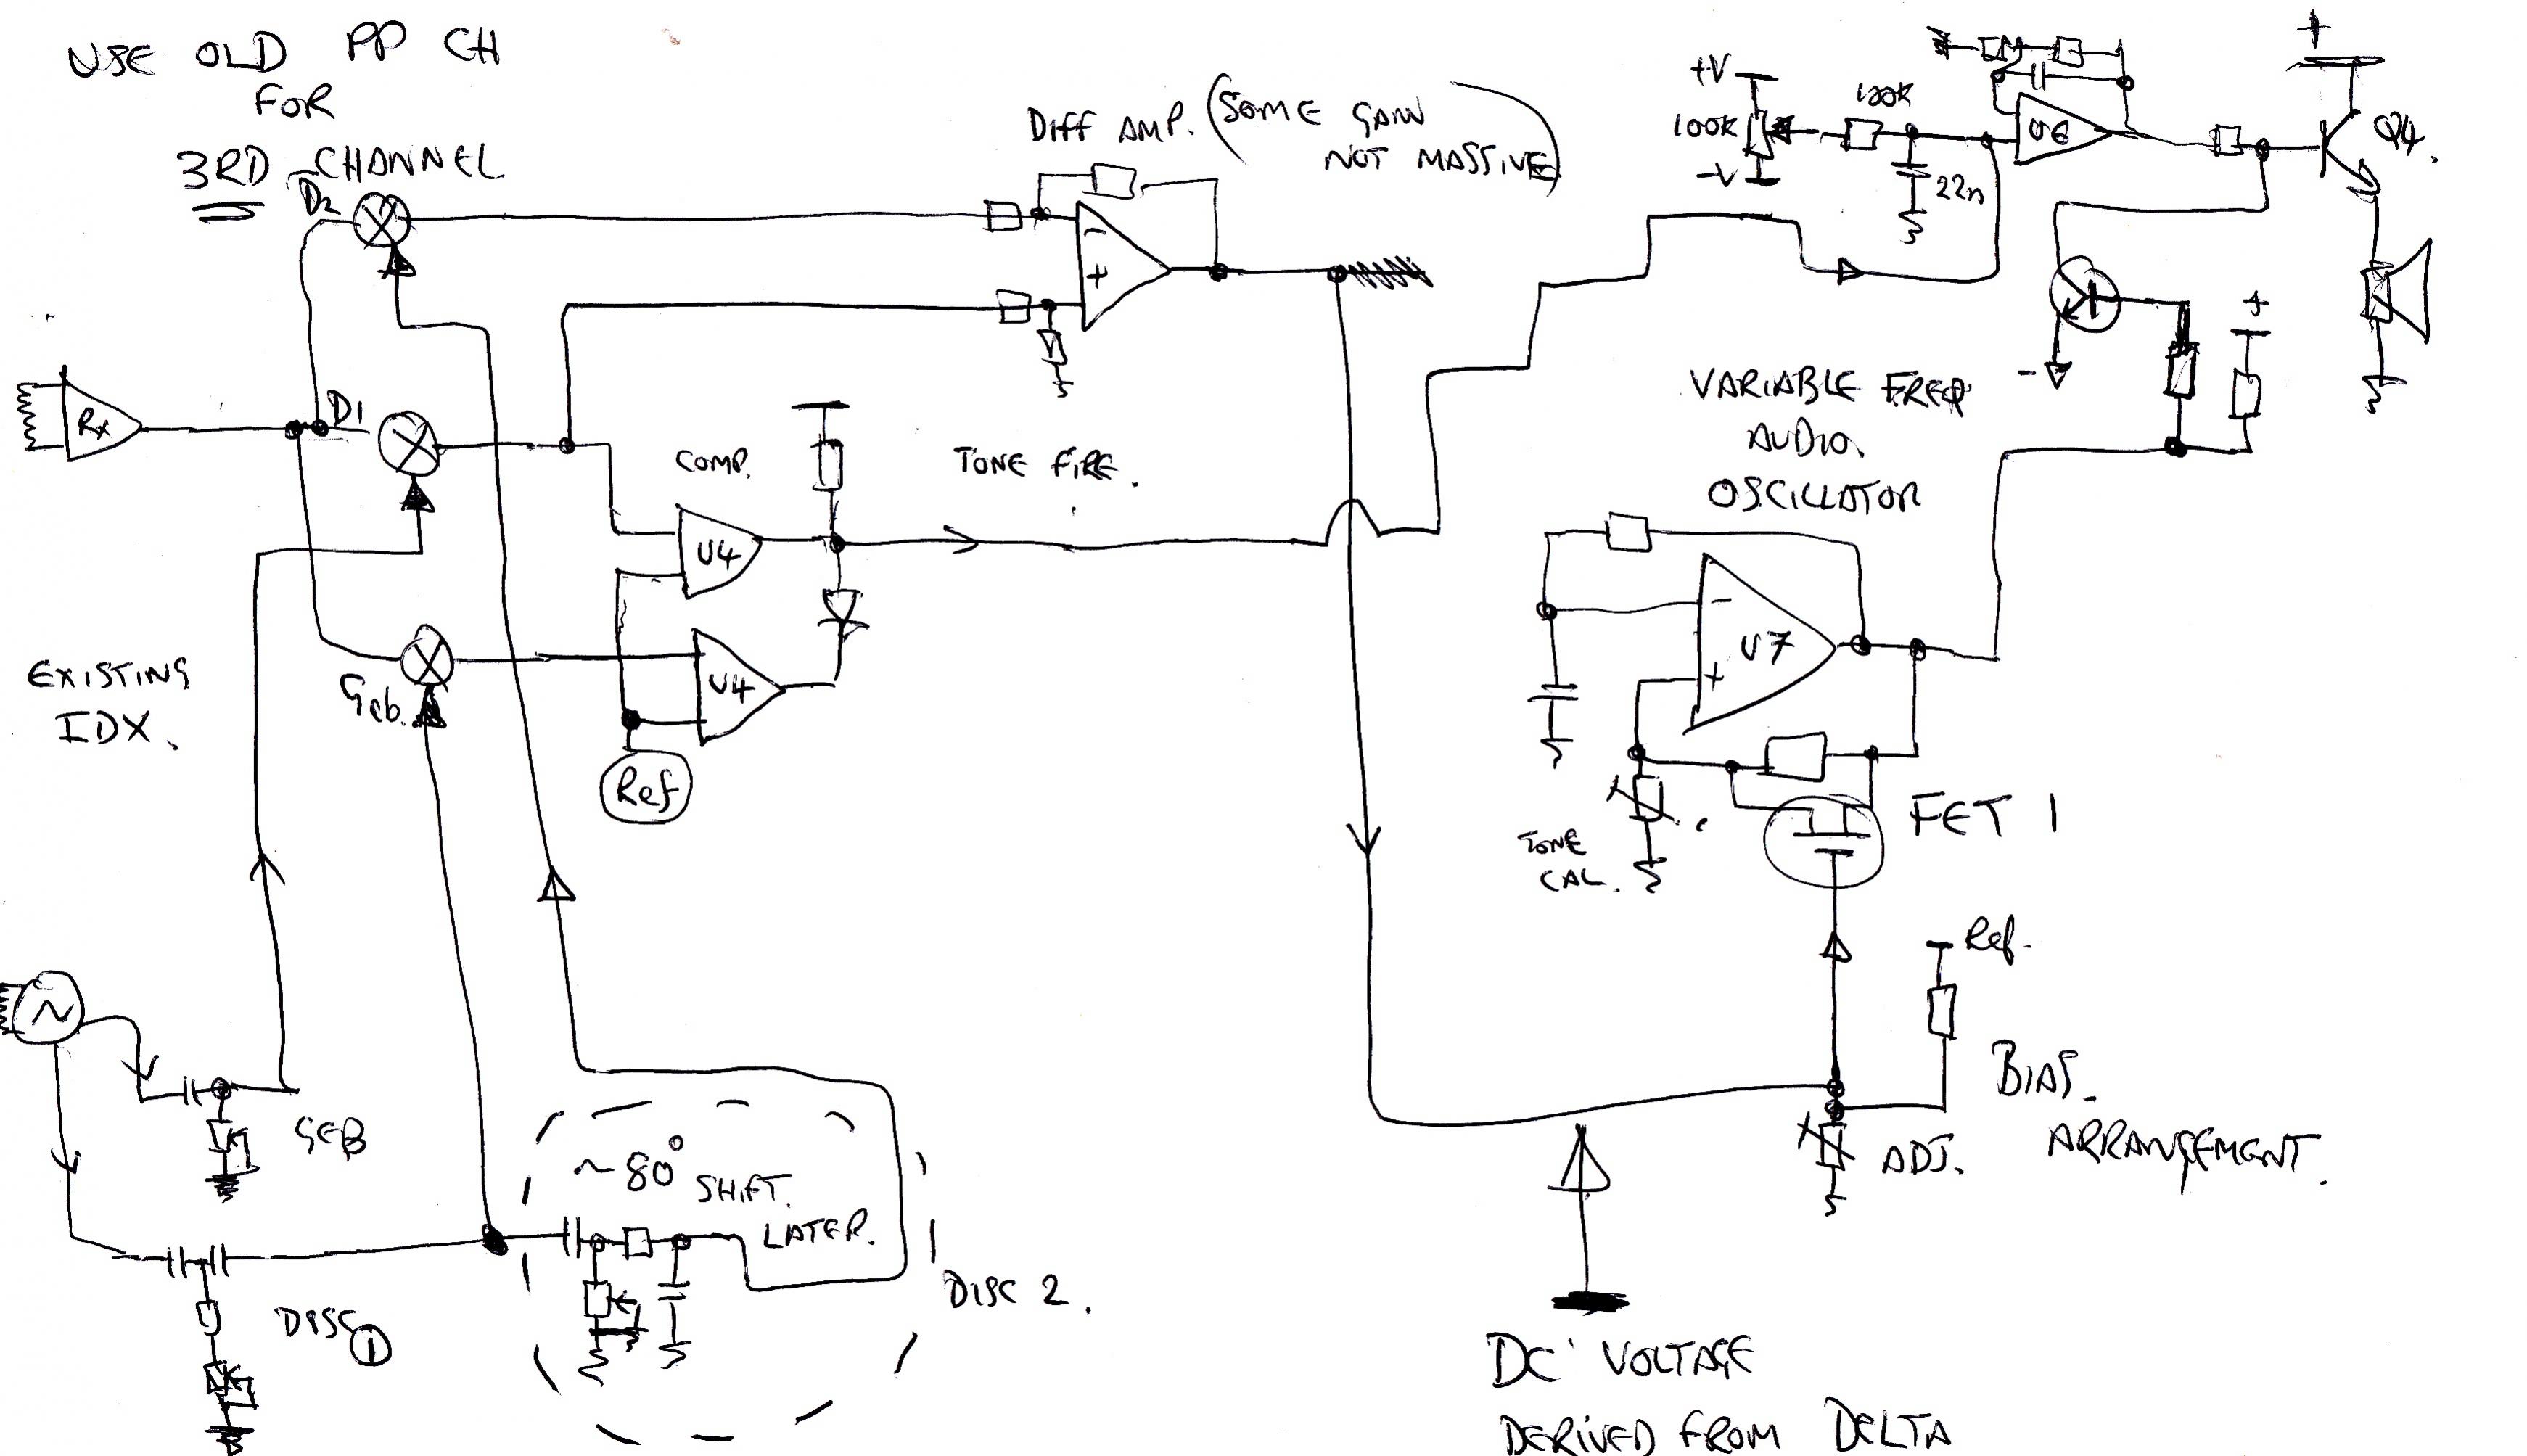 USE OLD PP CH
FOR
3RD CHANNEL
D2
DIFF AMP. (SOME GAIN
NOT MASSIVE)
+V
100K
100K
-V
22n
U6
+
Q4.
-
+
Rx
D1
COMP.
TONE FIRE.
U4
-
+
VARIABLE FREQ
AUDIO
OSCILLATOR
+
-
EXISTING
IDX.
Geb.
U4
Ref
-
U7
+
TONE
CAL.
FET 1
Ref.
GEB
~80° SHIFT.
LATER.
DISC 1
DISC 2.
BIAS
ARRANGEMENT.
ADJ.
DC VOLTAGE
DERIVED FROM DELTA